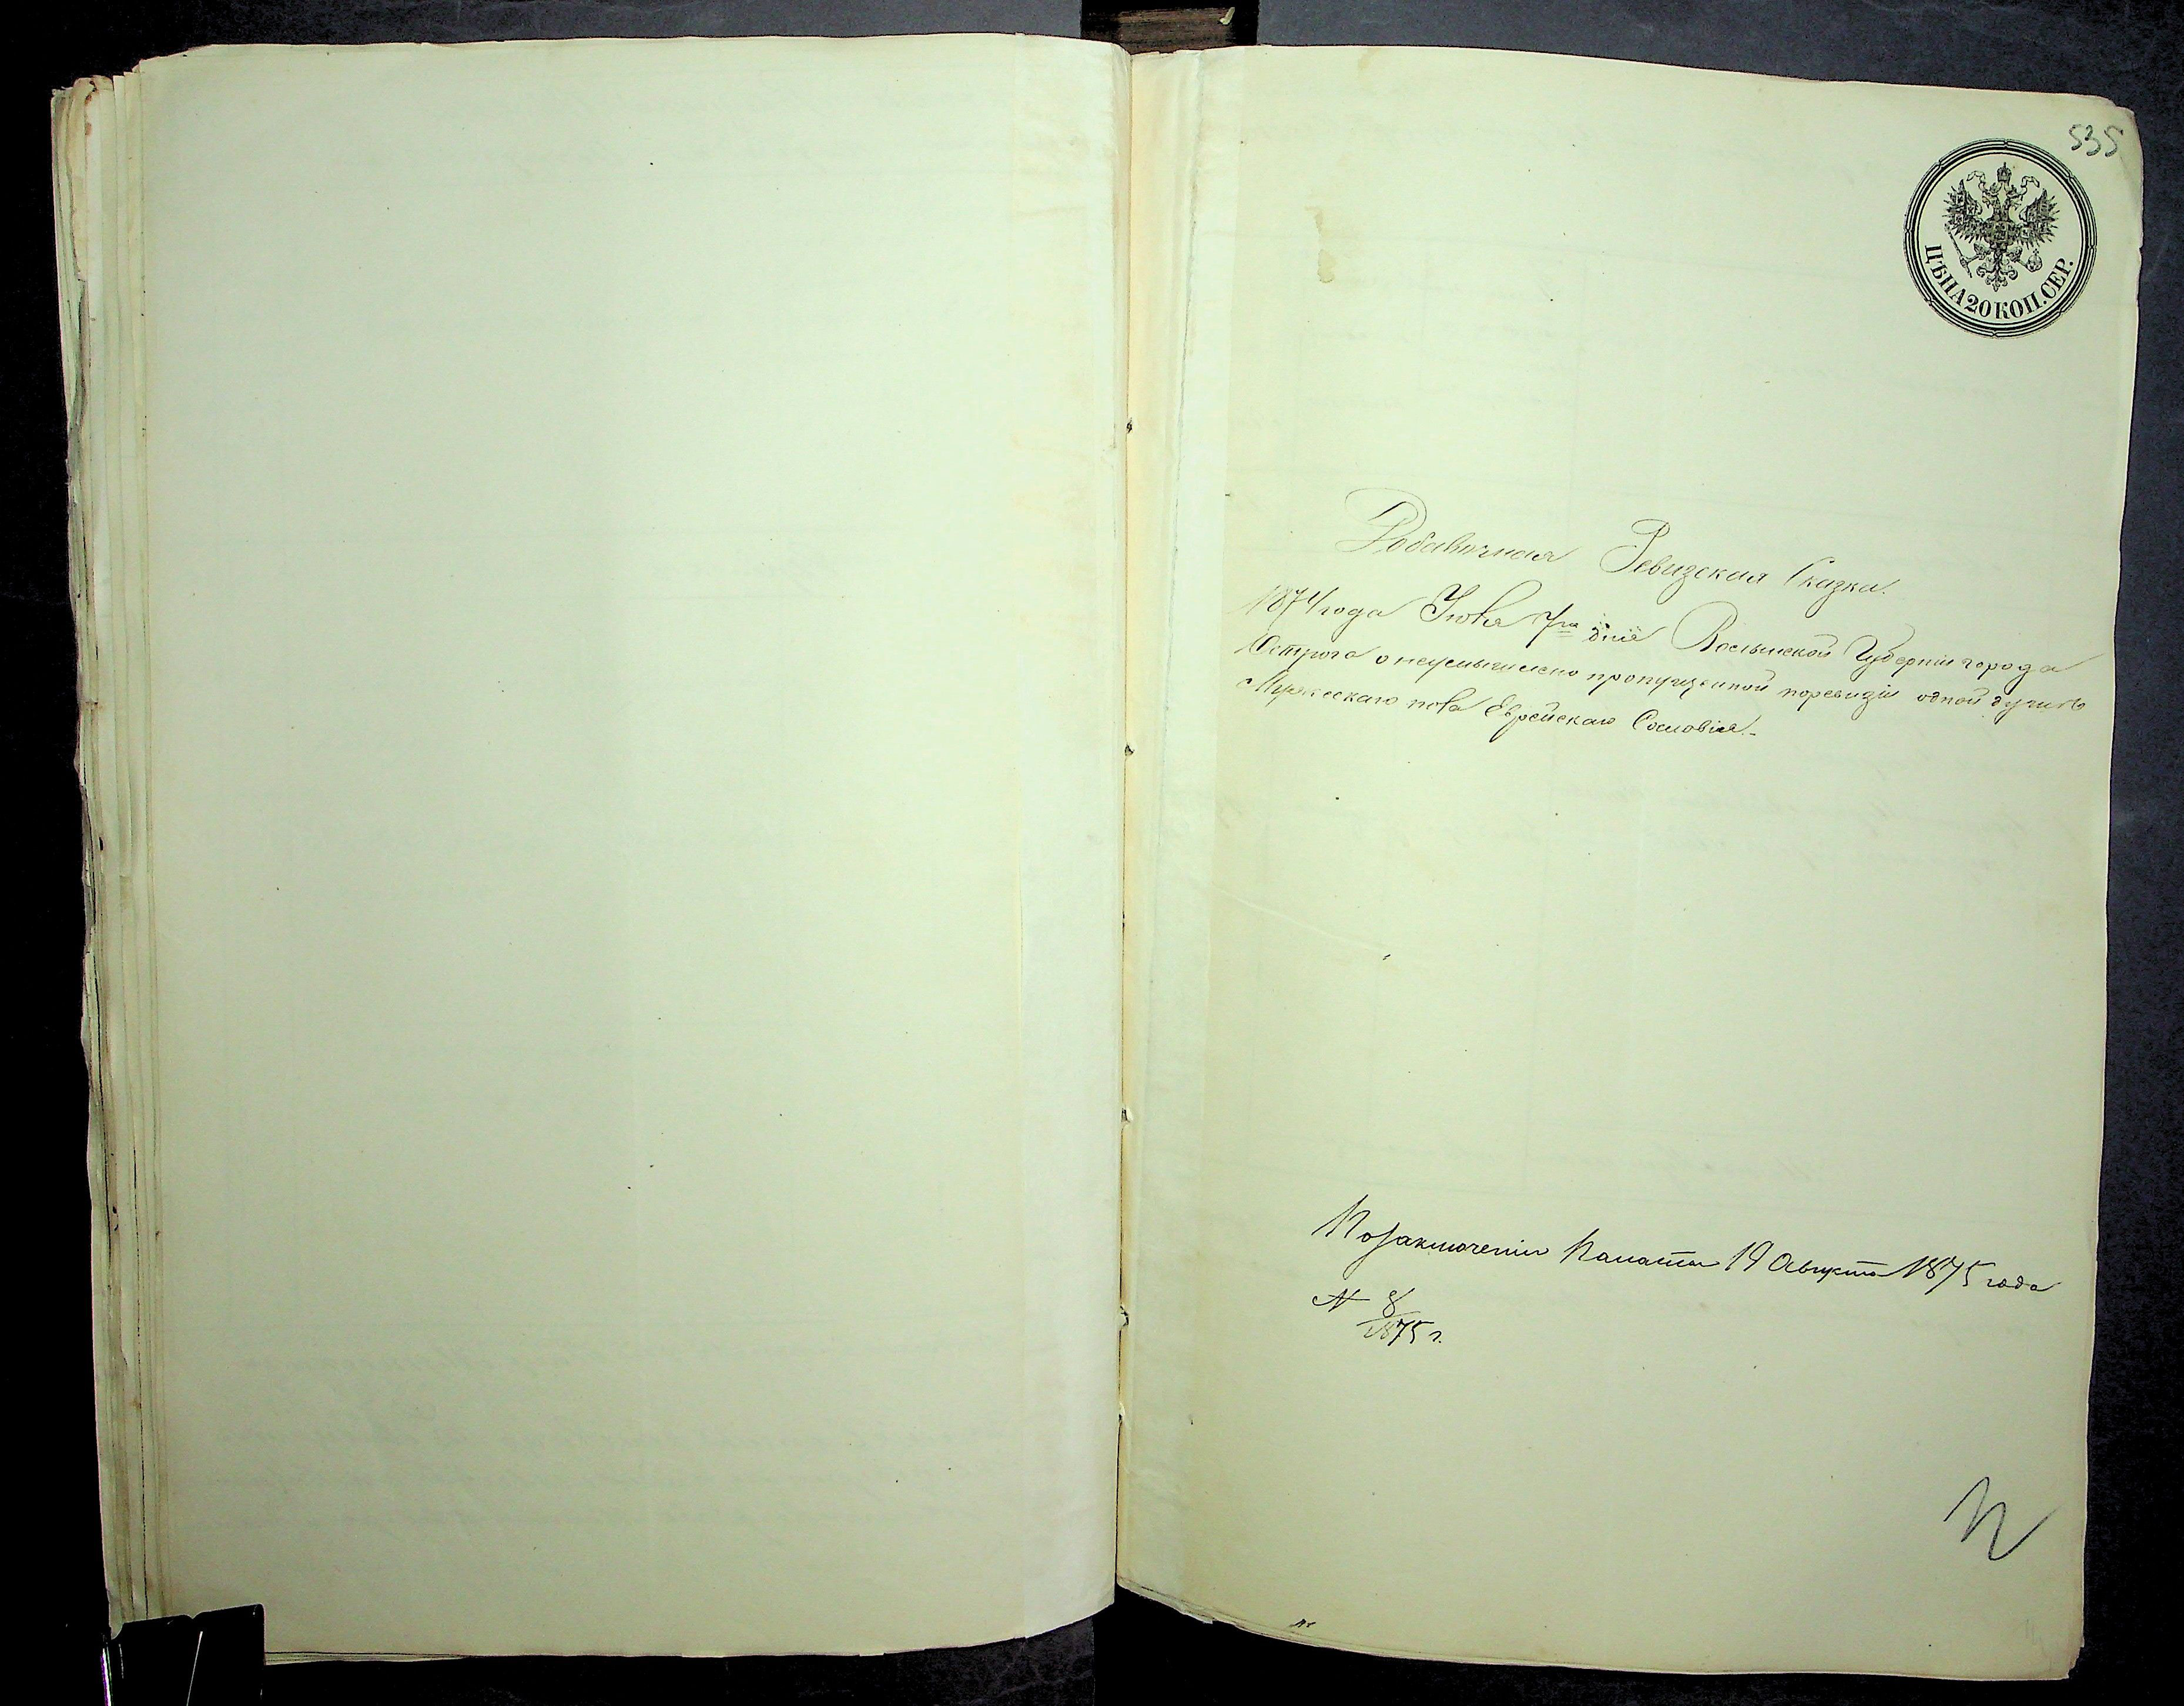 535
ЦѢНА 20 КОП. СЕР.
Добавочная Ревизская Сказка.
1874 года Июля 7го дня Волынской Губерніи города
Острога о неумышлено пропущенной поревизіи одной душѣ
Мужескаго пола Еврейскаго Сословія.-
По заключенію Палаты 19 Августа 1875 года
№ 8
1875 г.